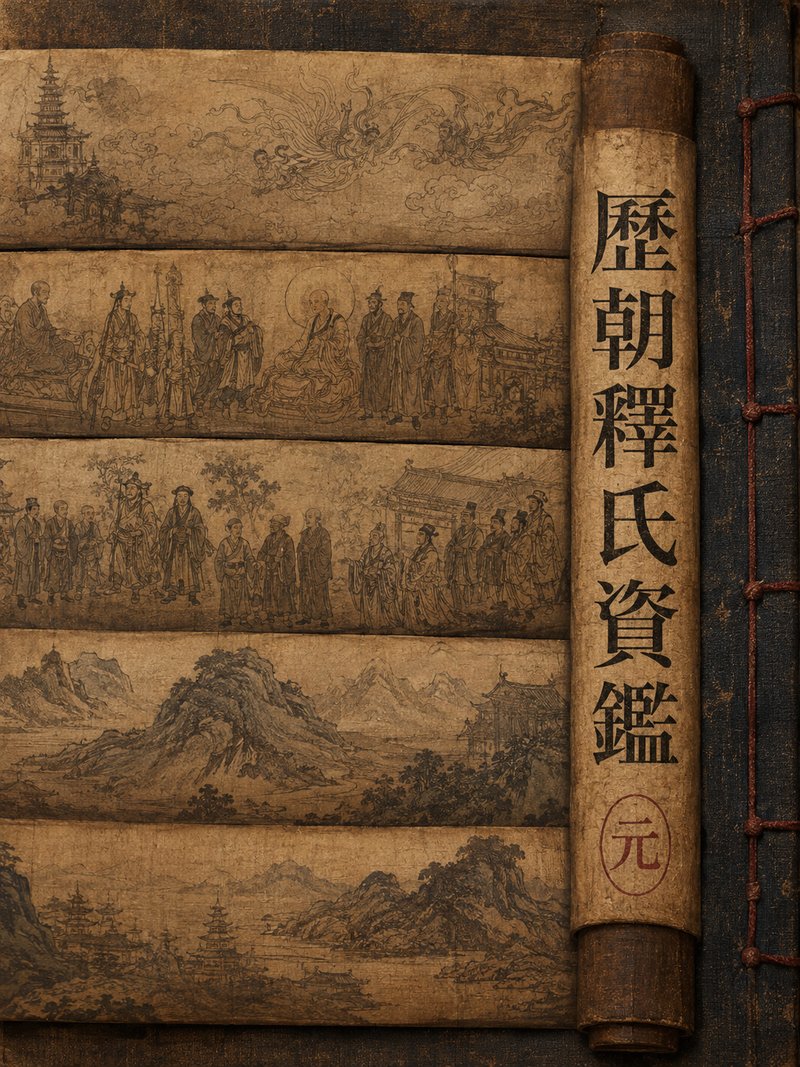 歷朝釋氏資鑑
元